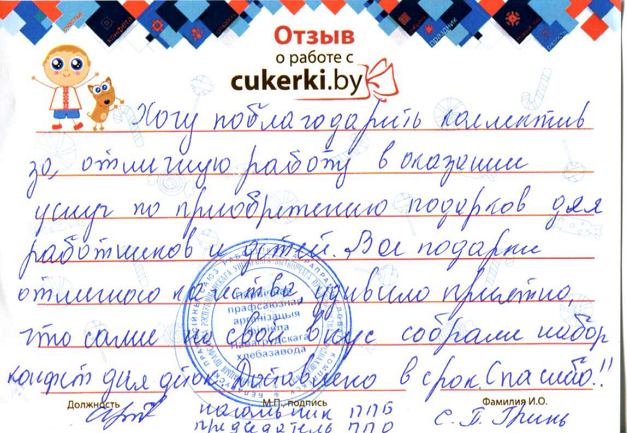 Отзыв
о работе с
cukerki.by
Хочу поблагодарить коллектив
за, отличную работу в оказании
услуг по приобретению подарков для
работников и детей. Все подарки
отличного качества, удивило приятно,
что сами на свой вкус собрали набор
конфет для деток. Доставлено в срок. Спасибо!!
Должность М.П., подпись Фамилия И.О.
начальник ППБ С. П. Гринь
председатель ППО
прафсаюзная
арганізацыя
хлебазавода